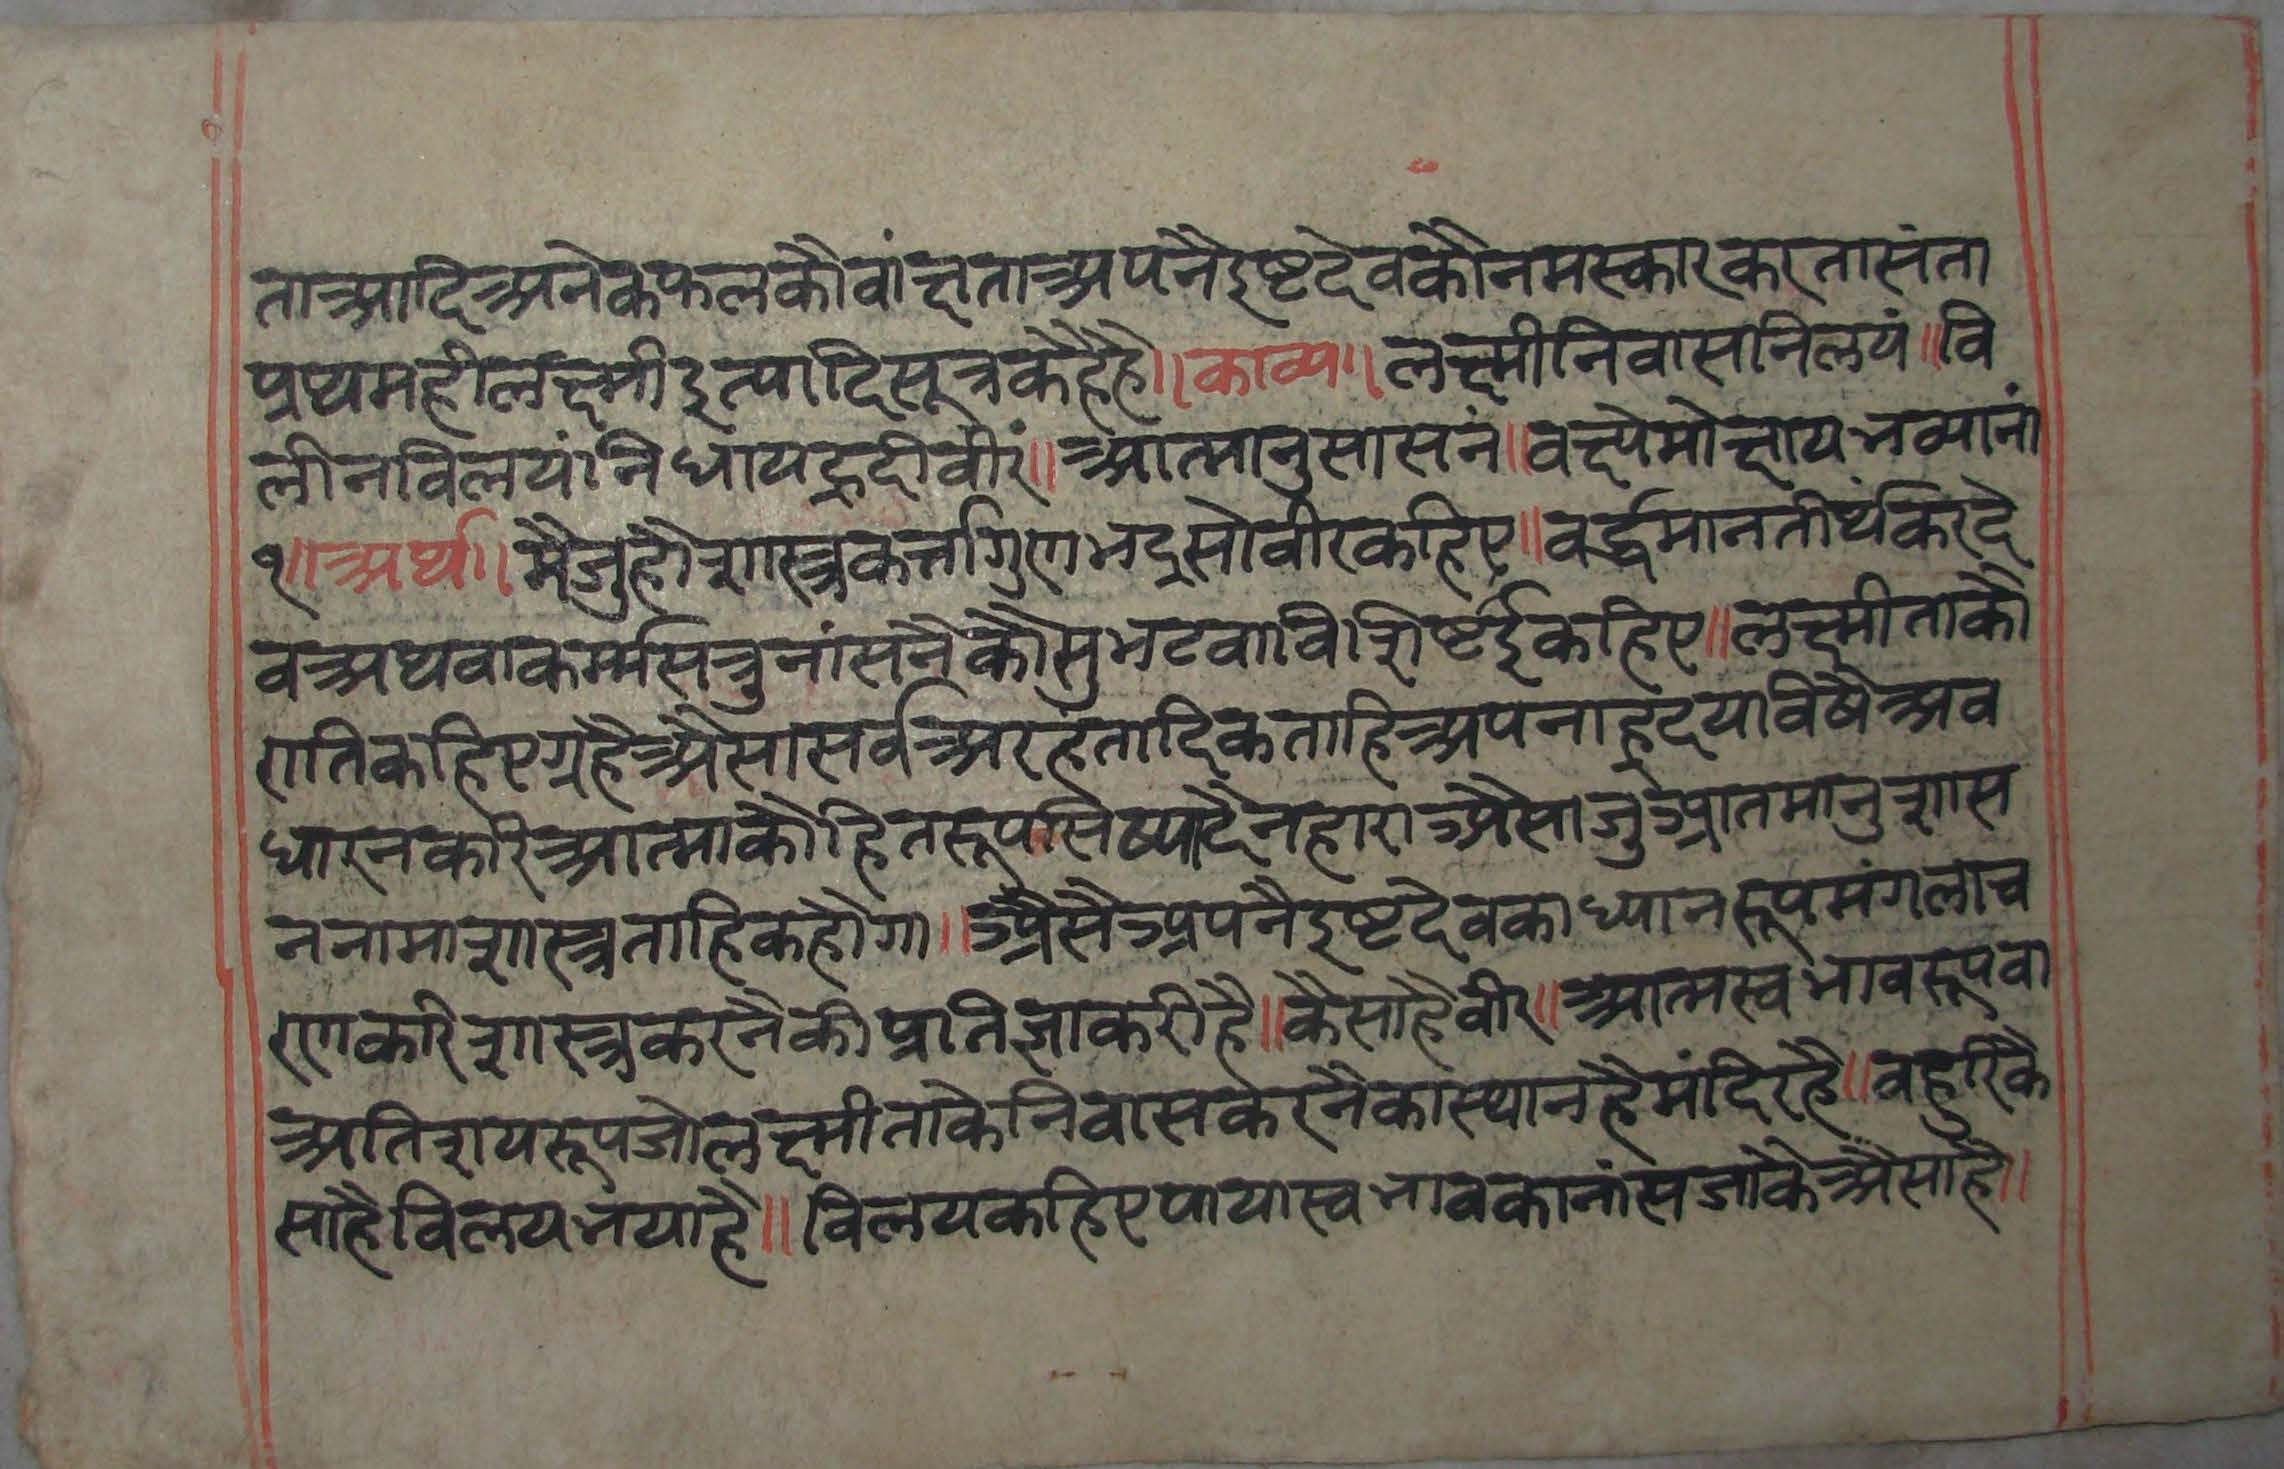 ताआदिअनेकफलकौवांछताअपनैइष्टदेवकौनमस्कारकरतासंता
प्रथमहीलक्ष्मीइत्यादिसूत्रकहैहै॥काव्य॥लक्ष्मीनिवासनिलयं॥वि
लीनविलयांनिधायह्रदीवीरं॥आत्मानुसासनं॥वक्ष्येमोक्षायभव्यानां
१॥अर्थ॥मैजुहौशास्त्रकर्त्तागुणभद्रसोवीरकहिए॥वर्द्धमानतीर्थंकरदे
वअथवाकर्म्मसत्रुनांसनैकौसुभटवाविशिष्टईकहिए॥लक्ष्मीताकौ
रातिकहिएग्रहैअैसासर्वअरहंतादिकताहिअपनाह्रदयाविषैअव
धारनकरिआत्माकौहितरूपसिष्यादैनहाराअैसाजुआतमानुशास
ननामाशास्त्रताहिकहौगा॥अैसैअपनैइष्टदैवकाध्यानरूपमंगलाच
रणकरिशास्त्रकरनैकीप्रतिज्ञाकरीहै॥कैसाहैवीर॥आत्मस्वभावरूपवा
अतिशयरूपजोलक्ष्मीताकैनिवासकरनैकास्थानहैमंदिरहै॥वहुरिकै
साहैविलयभयाहै॥विलयकहिएपायास्वभावकानांसजाकैअैसाहै॥